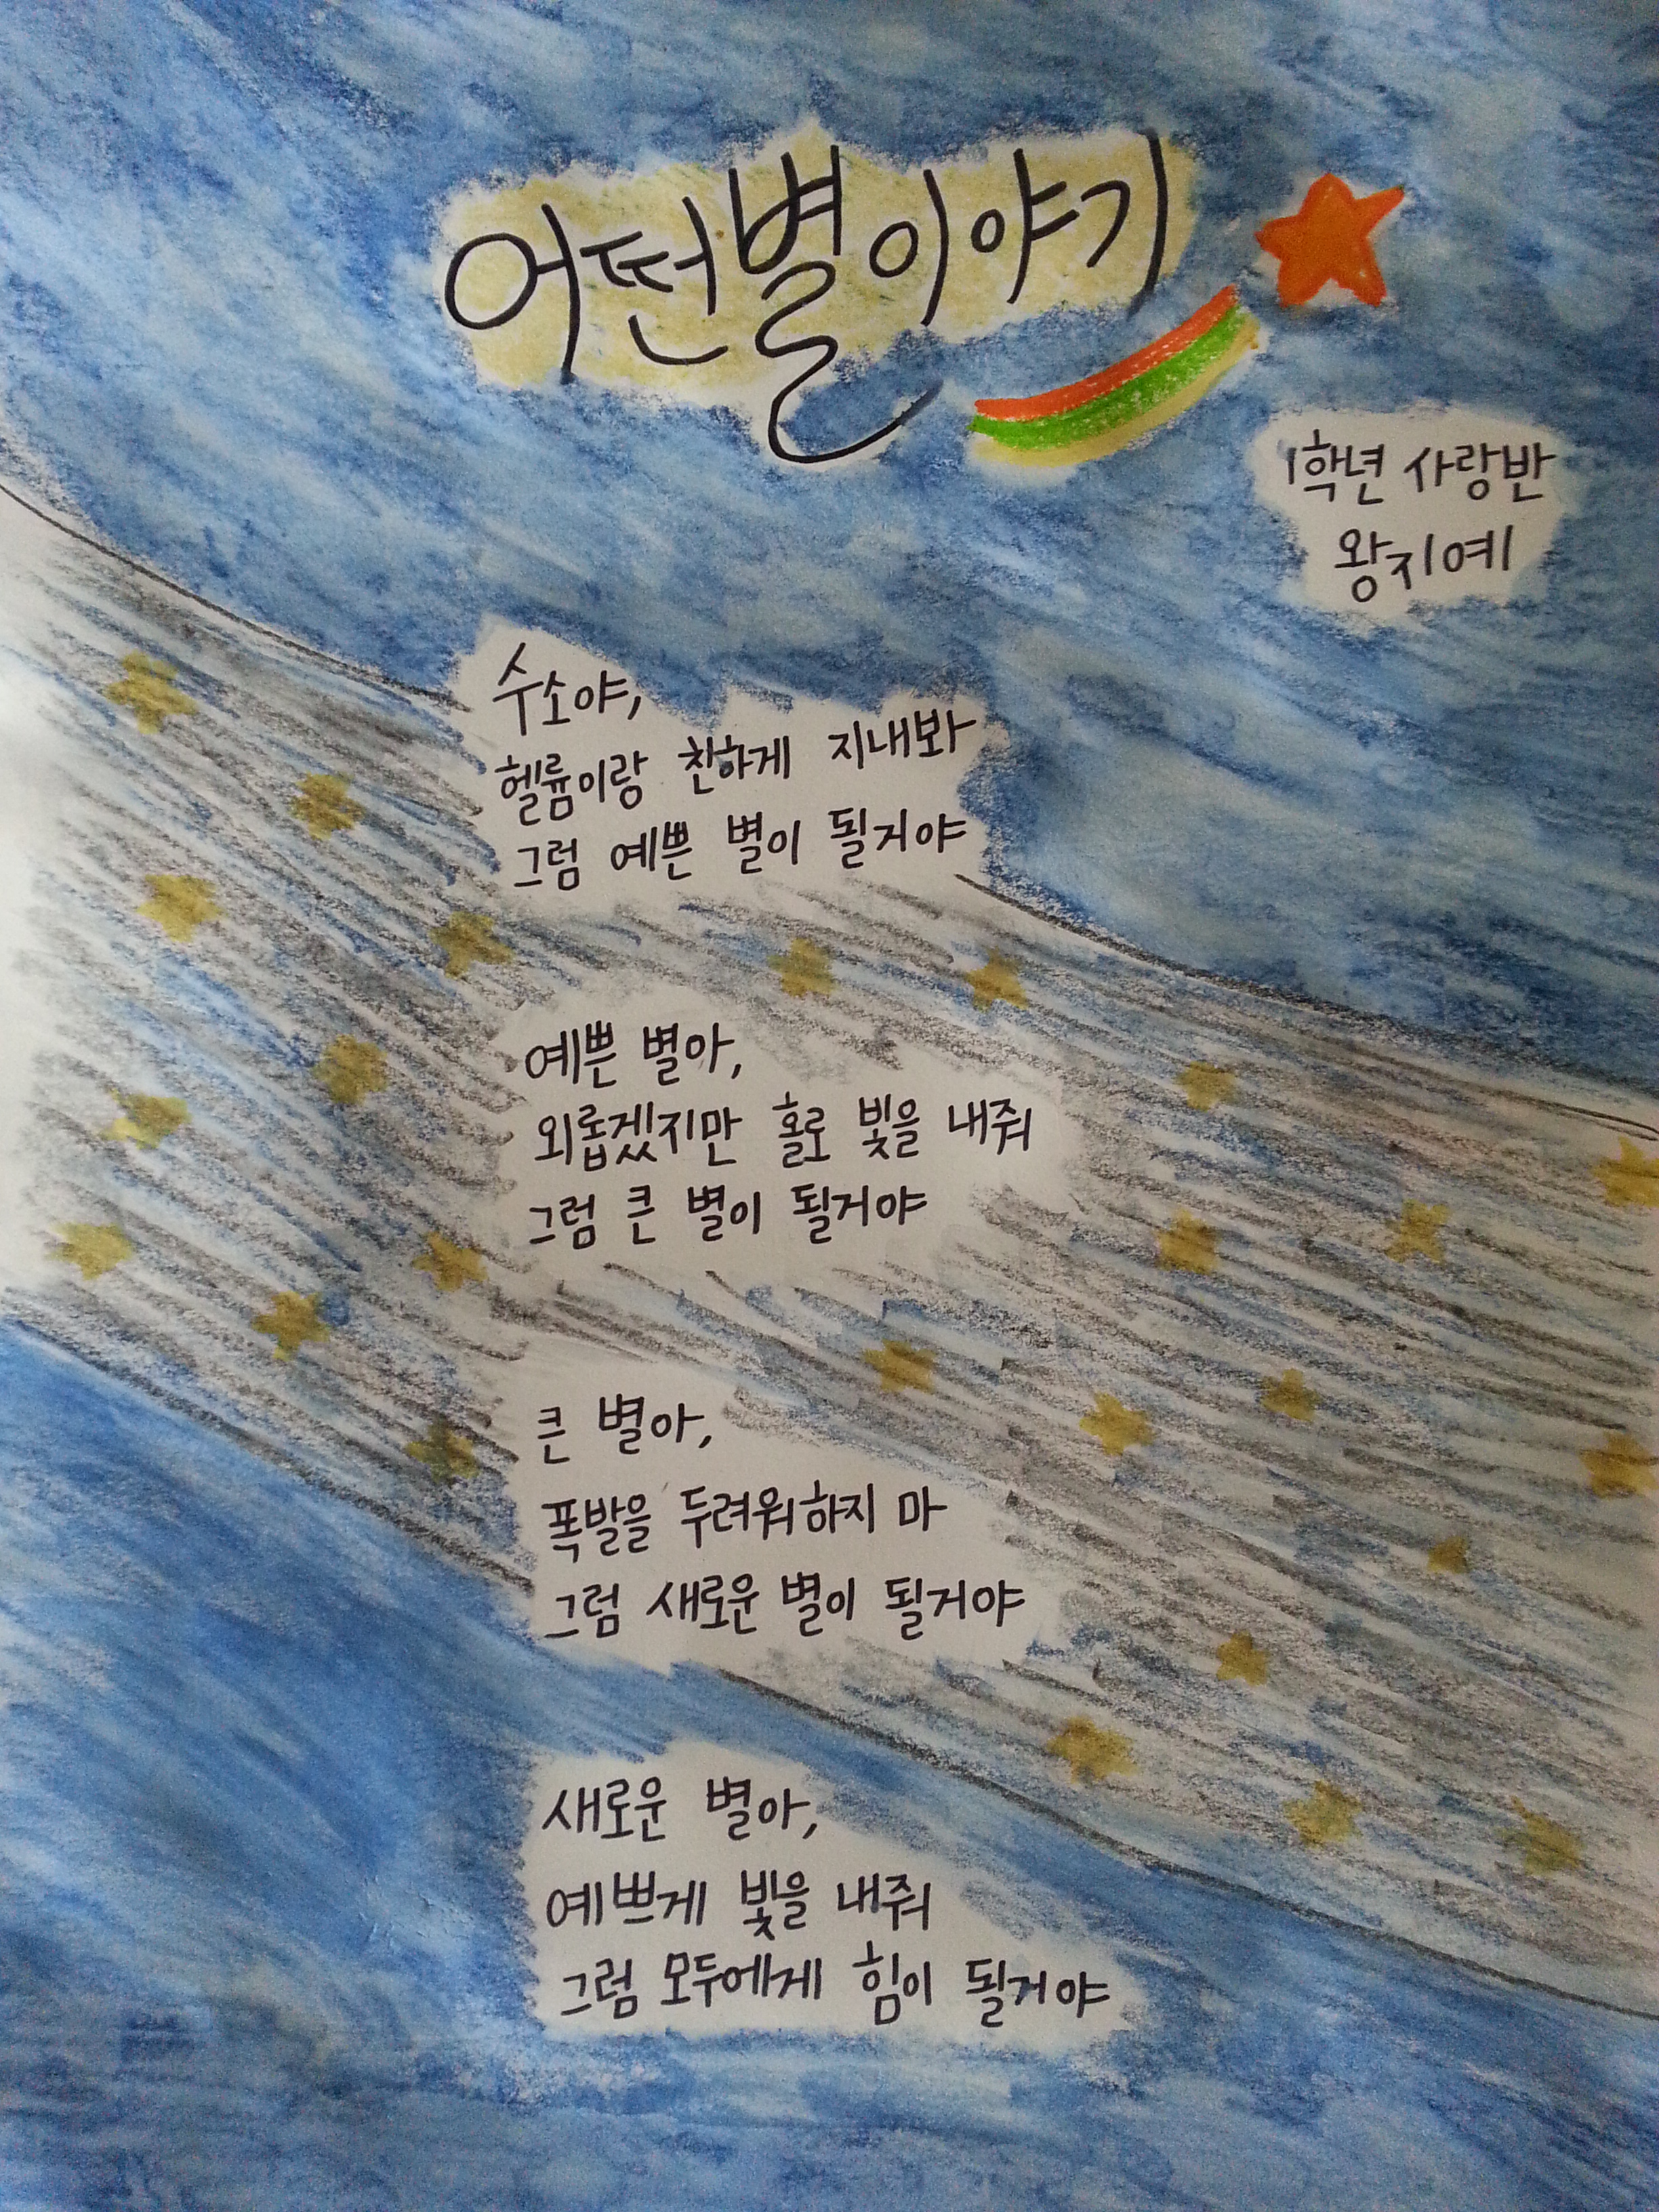 어떤 별 이야기
1학년 사랑반
왕지예
수소야,
헬륨이랑 친하게 지내봐
그럼 예쁜 별이 될거야
예쁜 별아,
외롭겠지만 홀로 빛을 내줘
그럼 큰 별이 될거야
큰 별아,
폭발을 두려워하지 마
그럼 새로운 별이 될거야
새로운 별아,
예쁘게 빛을 내줘
그럼 모두에게 힘이 될거야